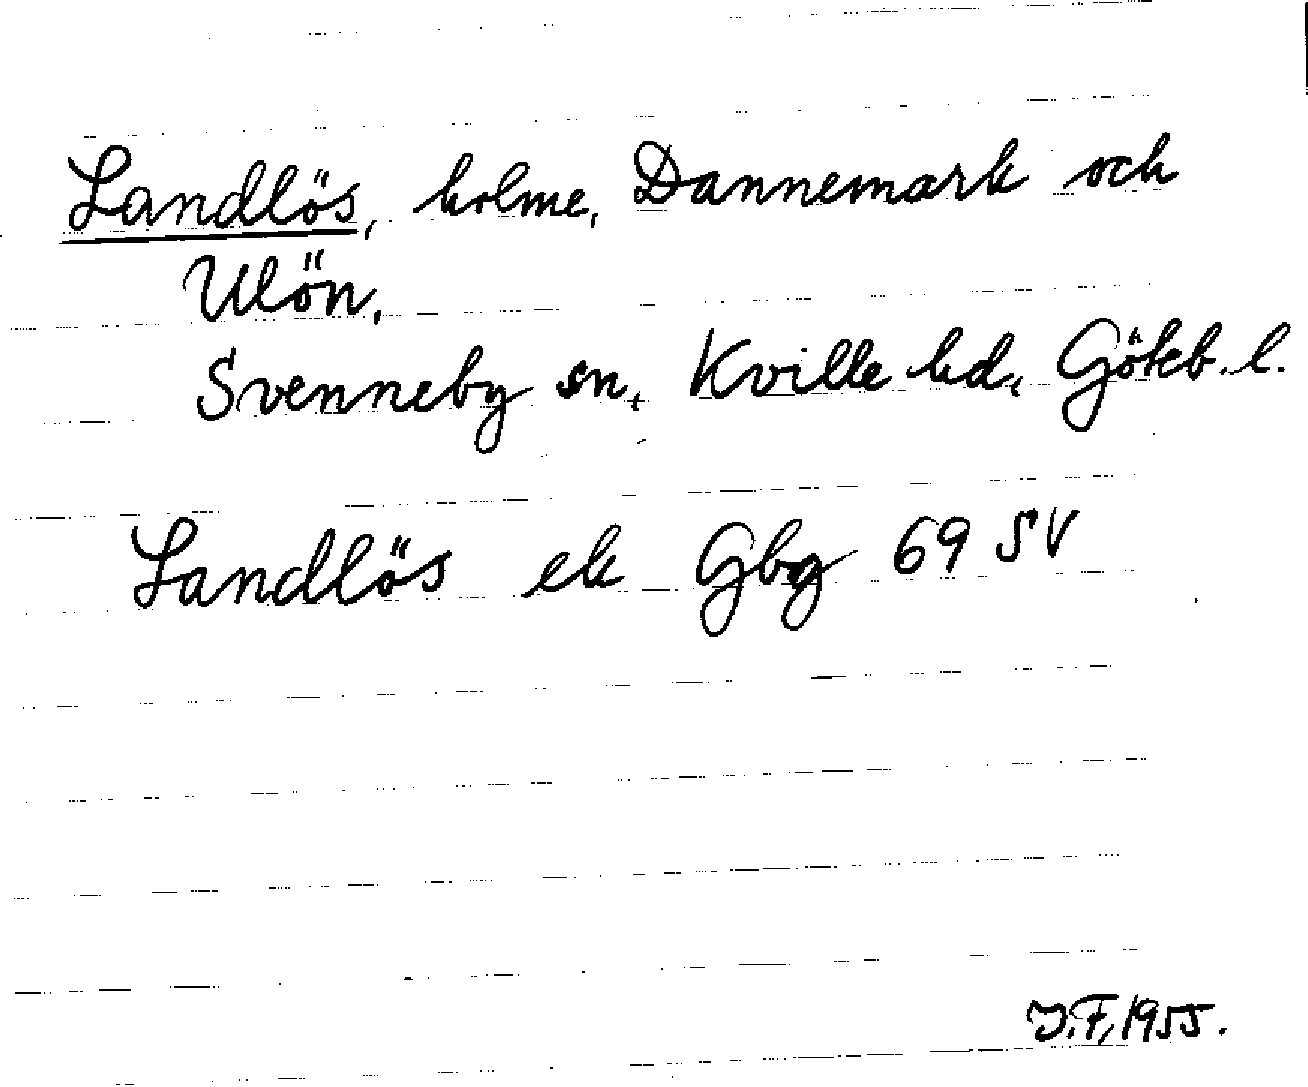 Landlös, holme, Dannemark och
Ulön,
Svenneby sn, Kville hd, Göteb. l.
Landlös ek Gbg 69 SV
J.F, 1955.